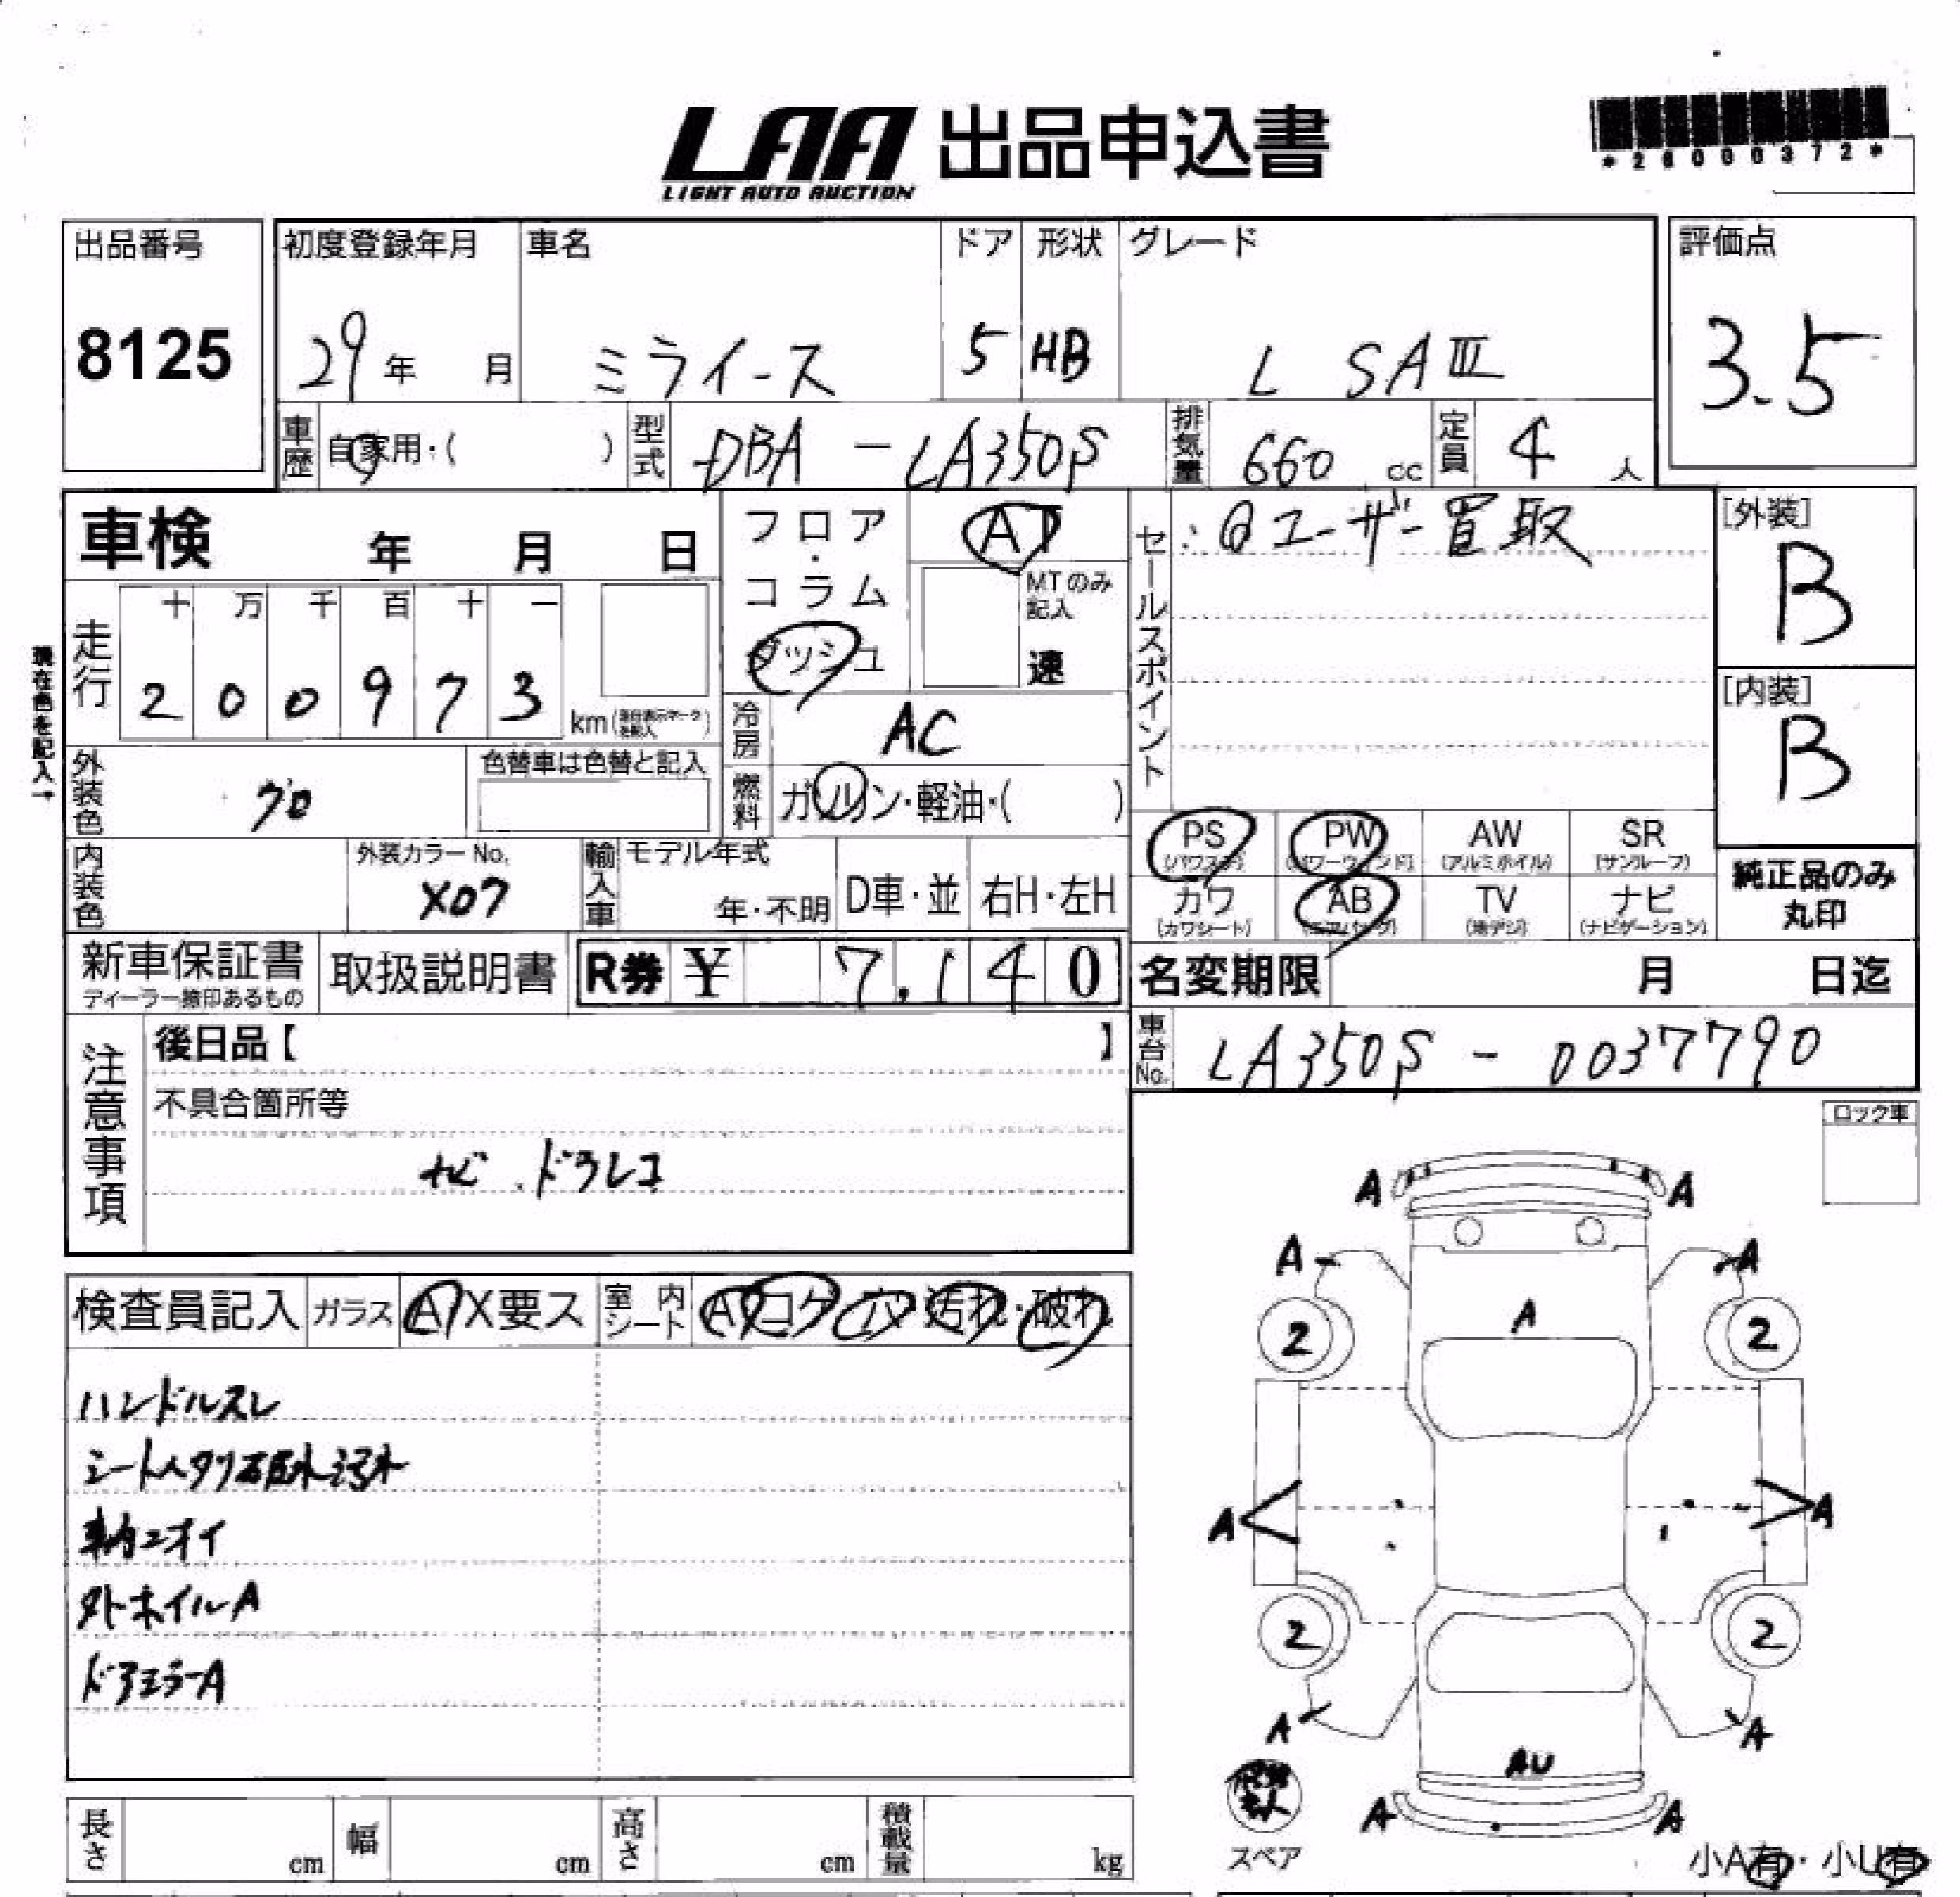 LAA 出品申込書
LIGHT AUTO AUCTION
*26000372*
出品番号
8125
初度登録年月
29年 月
車名
ミライース
ドア
5
形状
HB
グレード
L SAⅢ
評価点
3.5
車歴
自家用・( )
型式
DBA-LA350S
排気量
660 cc
定員
4 人
車検 年 月 日
フロア・コラム
ダッシュ
AT
MTのみ記入
速
セールスポイント
ユーザー買取
[外装]
B
[内装]
B
現在色を記入→
走行
十 万 千 百 十 一
2 0 0 9 7 3
km
冷房
AC
外装色
クロ
色替車は色替と記入
燃料
ガソリン・軽油・( )
PS
(パワステ)
PW
(パワーウィンド)
AW
(アルミホイル)
SR
(サンルーフ)
内装色
外装カラーNo.
X07
輸入車
モデル年式
年・不明
D車・並
右H・左H
カワ
(カワシート)
AB
(エアバッグ)
TV
(地デジ)
ナビ
(ナビゲーション)
純正品のみ
丸印
新車保証書
取扱説明書
R券 ¥ 7,140
名変期限 月 日迄
車台No.
LA350S-0037790
注意事項
後日品【 】
不具合箇所等
ナビ.ドラレコ
ロック車
検査員記入
ガラス
A X要ス
室内シート
A コゲ 穴・汚れ・破れ
ハンドルスレ
シートヘタリ破れ汚れ
車内ニオイ
外ホイルA
ドアミラーA
A A
A A
A
2 2
A A
2 2
A A
AU
A A
スペア
小A有・小U有
長さ cm
幅 cm
高さ cm
積載量 kg